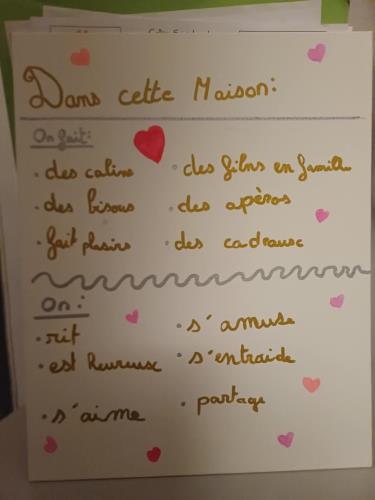 Dans cette Maison:
On fait:
. des calins . des films en famille
. des bisous . des apéros
. fait plaisirs . des cadeausc
On:
. rit . s'amuse
. est heureusc . s'entraide
. s'aime . partage